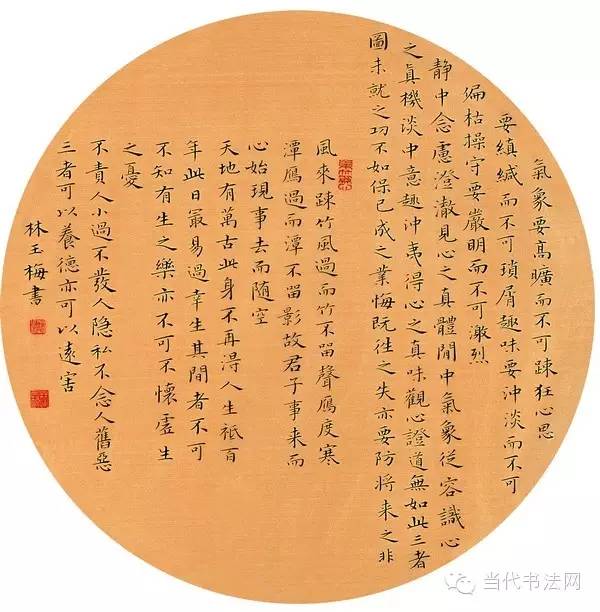 氣象要高曠而不可踈狂心思
要縝緘而不可瑣屑趣味要沖淡而不可
煸枯操守要嚴明而不可激烈
静中念慮澄澈見心之真體閒中氣象從容識心
之真機淡中意趣沖夷得心之真味觀心證道無如此三者
圖未就之功不如保已成之業悔既往之失亦要防將来之非
風來踈竹風過而竹不留聲鴈度寒
潭鴈過而潭不留影故君子事来而
心始現事去而随空
天地有萬古此身不再得人生祗百
年此日最易過幸生其間者不可
不知有生之樂亦不可不懷虛生
之憂
不責人小過不發人隐私不念人舊惡
三者可以養德亦可以遠害
林玉梅書
当代书法网